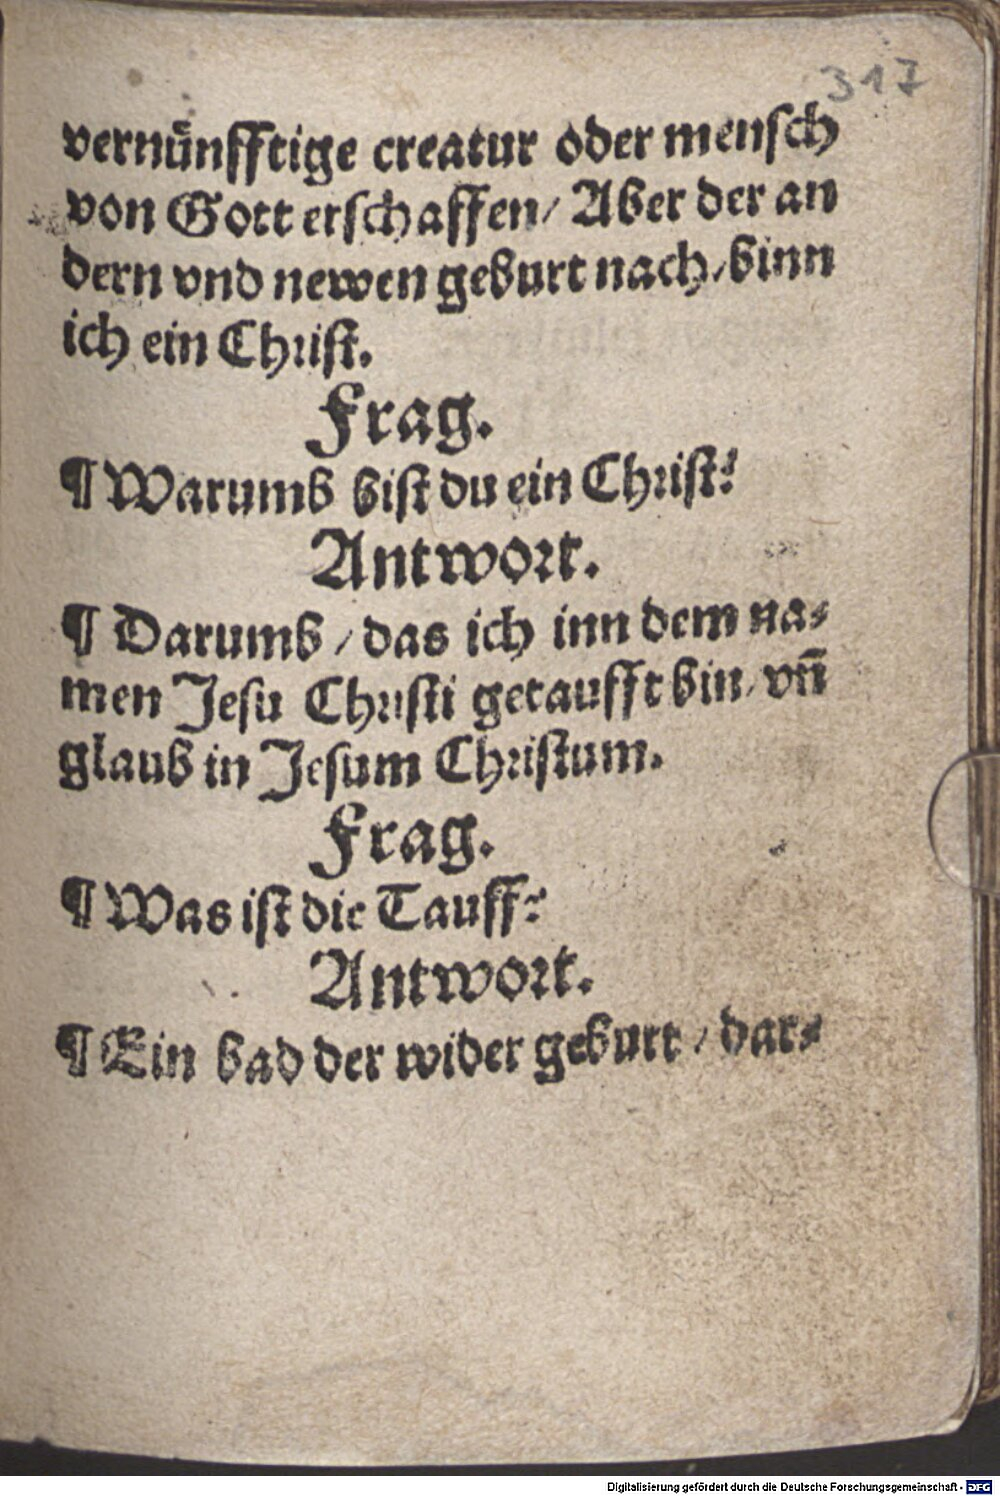 317
vernünfftige creatur oder mensch
von Gott erschaffen / Aber der an
dern vnd newen geburt nach / binn
ich ein Christ.
Frag.
¶ Warumb bist du ein Christ?
Antwort.
¶ Darumb / das ich inn dem na-
men Jesu Christi getaufft bin / vn̄
glaub in Jesum Christum.
Frag.
¶ Was ist die Tauff?
Antwort.
¶ Ein bad der wider geburt / dar-
Digitalisierung gefördert durch die Deutsche Forschungsgemeinschaft - DFG